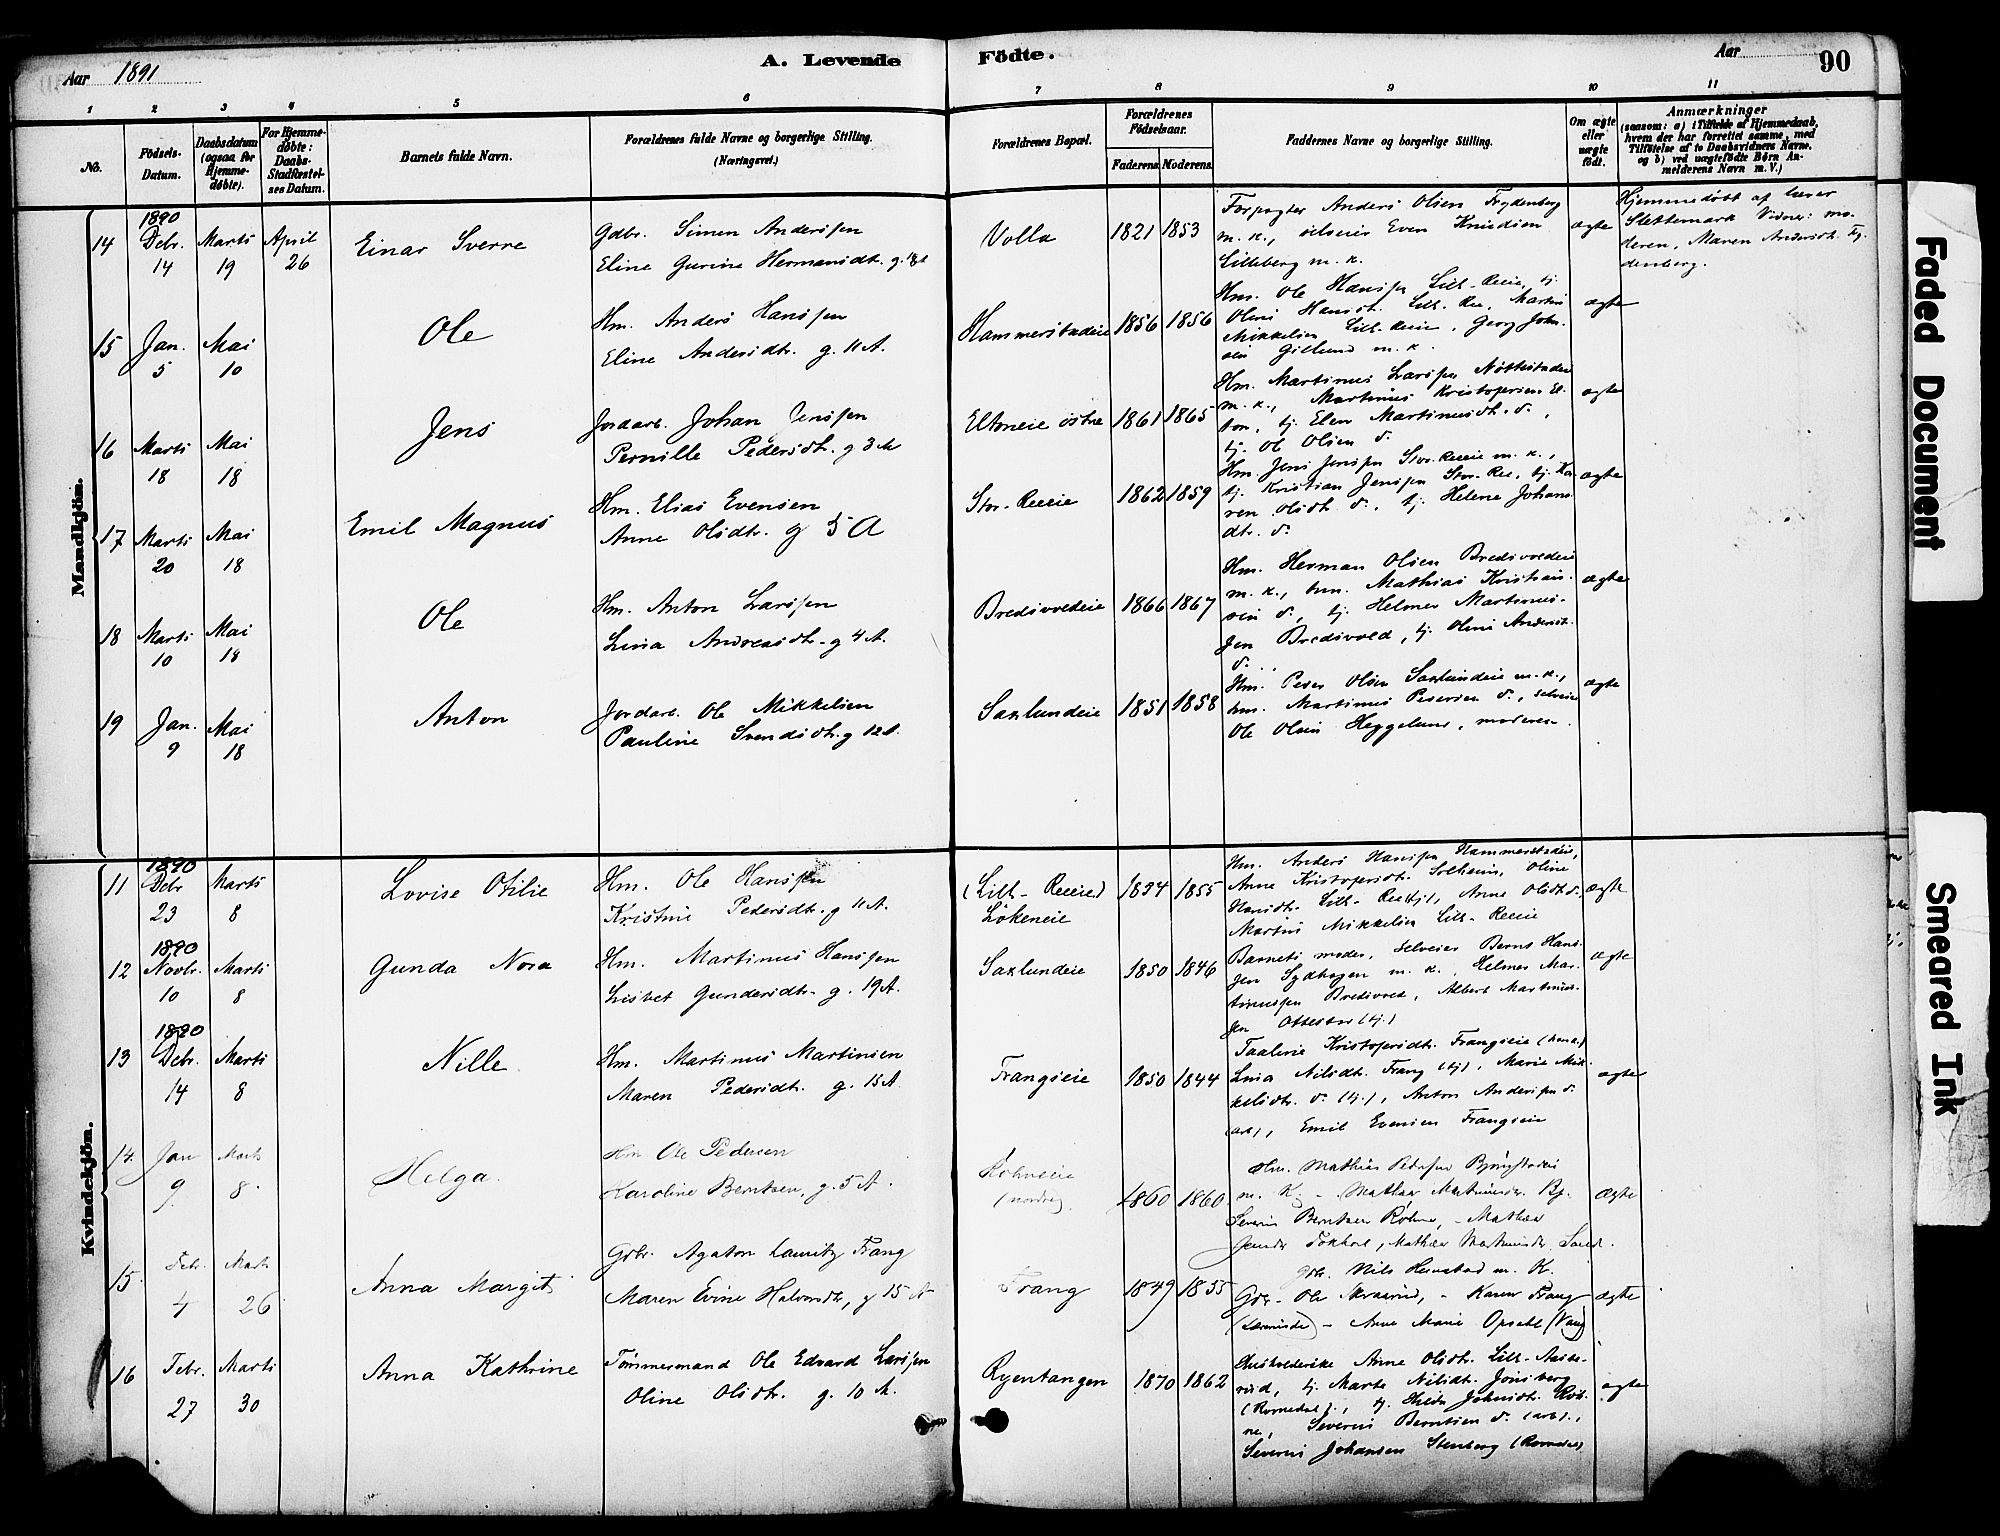 Aar 1891
A. Levende Födte.
Aar
90
1 2 3 4 5 6 7 8 9 10 11
No.
Födsels-Datum.
Daabsdatum (ogsaa for Hjemme-døbte).
For Hjemme-døbte: Daabs-Stadfæstel-ses Datum.
Barnets fulde Navn.
Forældrenes fulde Navne og borgerlige Stilling. (Næringsvei.)
Forældrenes Bopæl.
Forældrenes Födselsaar.
Faderens. Moderens.
Faddernes Navne og borgerlige Stilling.
Om ægte eller uægte födt.
Anmærkninger
(saasom: a) i Tilfælde af Hjemmedaab,
hvem der har forrettet samme, med
Tilföielse af to Daabsvidners Navne,
og b) ved uægtefödte Börn An-
melderens Navn m. V.)
Mandkjön.
14 1890 Debr. 14 Marts 19 April 26 Einar Sverre
Gdbr. Simen Andersen
Eline Gurine Hermansdt.
Volla 1821 1853
Forpagter Anders Olsen Frydenberg
m. k., selveier Even Knudsen
Lilleberg m. k.
ægte
Hjemmedøbt af lærer
Slettemark Vidner: mo-
deren, Maren Andersdt. Fry-
denberg.
15 Jan. 5 Mai 10 Ole
Hm. Anders Hansen
Eline Andersdtr. g. 11 A.
Hammerstadeie 1856 1856
Hm. Ole Hansen Lill-Reeie, tj.
Oline Hansdt. Lill-Ree, Martin
Mikkelsen Lill-Reeie, Georg Johan-
sen Gillund m. k.
ægte
16 Marts 18 Mai 18 Jens
Jordarb. Johan Jenssen
Pernille Pedersdt. g 3 A
Eltoneie östre 1861 1865
Hm. Martinus Larsen
m. k., Martinus Kristofersen El-
ton, tj. Elen Martinusdt. d.,
tj. Ole Olsen d.
ægte
17 Marts 20 Mai 18 Emil Magnus
Hm. Elias Evensen
Anne Olsdtr. g 5 A
Stor-Reeie 1862 1859
Hm. Jens Jensen Stor-Reeie m. k.,
tj. Kristian Jensen Stor-Ree, tj. Ka-
ren Olsdt. d., tj. Helene Johans-
dtr. d.
ægte
18 Marts 10 Mai 18 Ole
Hm. Anton Larsen
Lina Andreasdt. g 4 A.
Bredsvoldeie 1866 1867
Hm. Herman Olsen Bredsvoldeie
m. k., hm. Mathias Kristian-
sen d., tj. Helmer Martinus-
sen Bredsvold, tj. Oline Andersdt.
d.
ægte
19 Jan. 9 Mai 18 Anton
Jordarb. Ole Mikkelsen
Pauline Svendsdt. g 12 A.
Saxlundeie 1851 1858
Hm. Peder Olsen Saxlundeie m. k.,
hm. Martinus Pedersen d., selveier
Ole Olsen Heggelund, moderen.
ægte
Kvindekjön.
11 1890 Debr 23 Marts 8 Lovise Otilie
Hm. Ole Hansen
Kristine Pedersdt. g 11 A.
(Lill-Reeie) Lökeneie 1854 1855
Hm. Anders Hansen Hammerstadeie,
Anne Kristofersdt. Solheim, Oline
Hansdt. Lill-Ree (tj), Anne Olsdt. d.,
Martin Mikkelsen Lill-Reeie
ægte
12 1890 Novbr. 10 Marts 8 Gunda Nora
Hm. Martinus Hansen
Lisbet Gundersdt. g. 19 A.
Saxlundeie 1850 1846
Barnets moder, selveier Bernt Han-
sen Sydhagen m. k., Helmer Mar-
tinussen Bredsvold, Albert Martinus-
sen Ottestad (tj.)
ægte
13 1890 Debr. 14 Marts 8 Nille.
Hm. Martinus Martinsen
Maren Pedersdt. g. 15 A.
Frangseie 1850 1844
Taaline Kristofersdt. Frangseie
Lina Nilsdt. Frang (tj), Marie Mik-
kelsdtr. d. (tj.), Anton Andersen d.
(arb), Emil Evensen Frangseie
ægte
14. Jan 9 Marts 8. Helga.
Hm Ole Pedersen
Karoline Berntsen, g. 5 A.
(nordre) 1860 1860
Hm. Mathias Pedersen
m. K.
Severin Berntsen
ægte
15. Febr. 4 Marts 26 Anna Margit
Gdbr. Agaton Lauritz Frang
Maren Evine Halvorsdtr, g 15 A
Frang 1849 1855
gdbr. Nils Hemstad m. K.
Gdbr. Ole – Karen Frang
– Anne Marie Opsahl (Vang)
ægte
16 Febr. 27 Marts 30 Anna Kathrine
Tömmermand Ole Edvard Larsen
Oline Olsdtr. g. 10 A.
Ryentangen 1870 1862
Husholderske Anne Olsdtr.
tj. Marte Nilsdt. Jönsberg
(Romedal),
Severin Berntsen d. (arb).,
Severin Johansen Stenberg (Romedal)
ægte
Faded Document
Smeared Ink